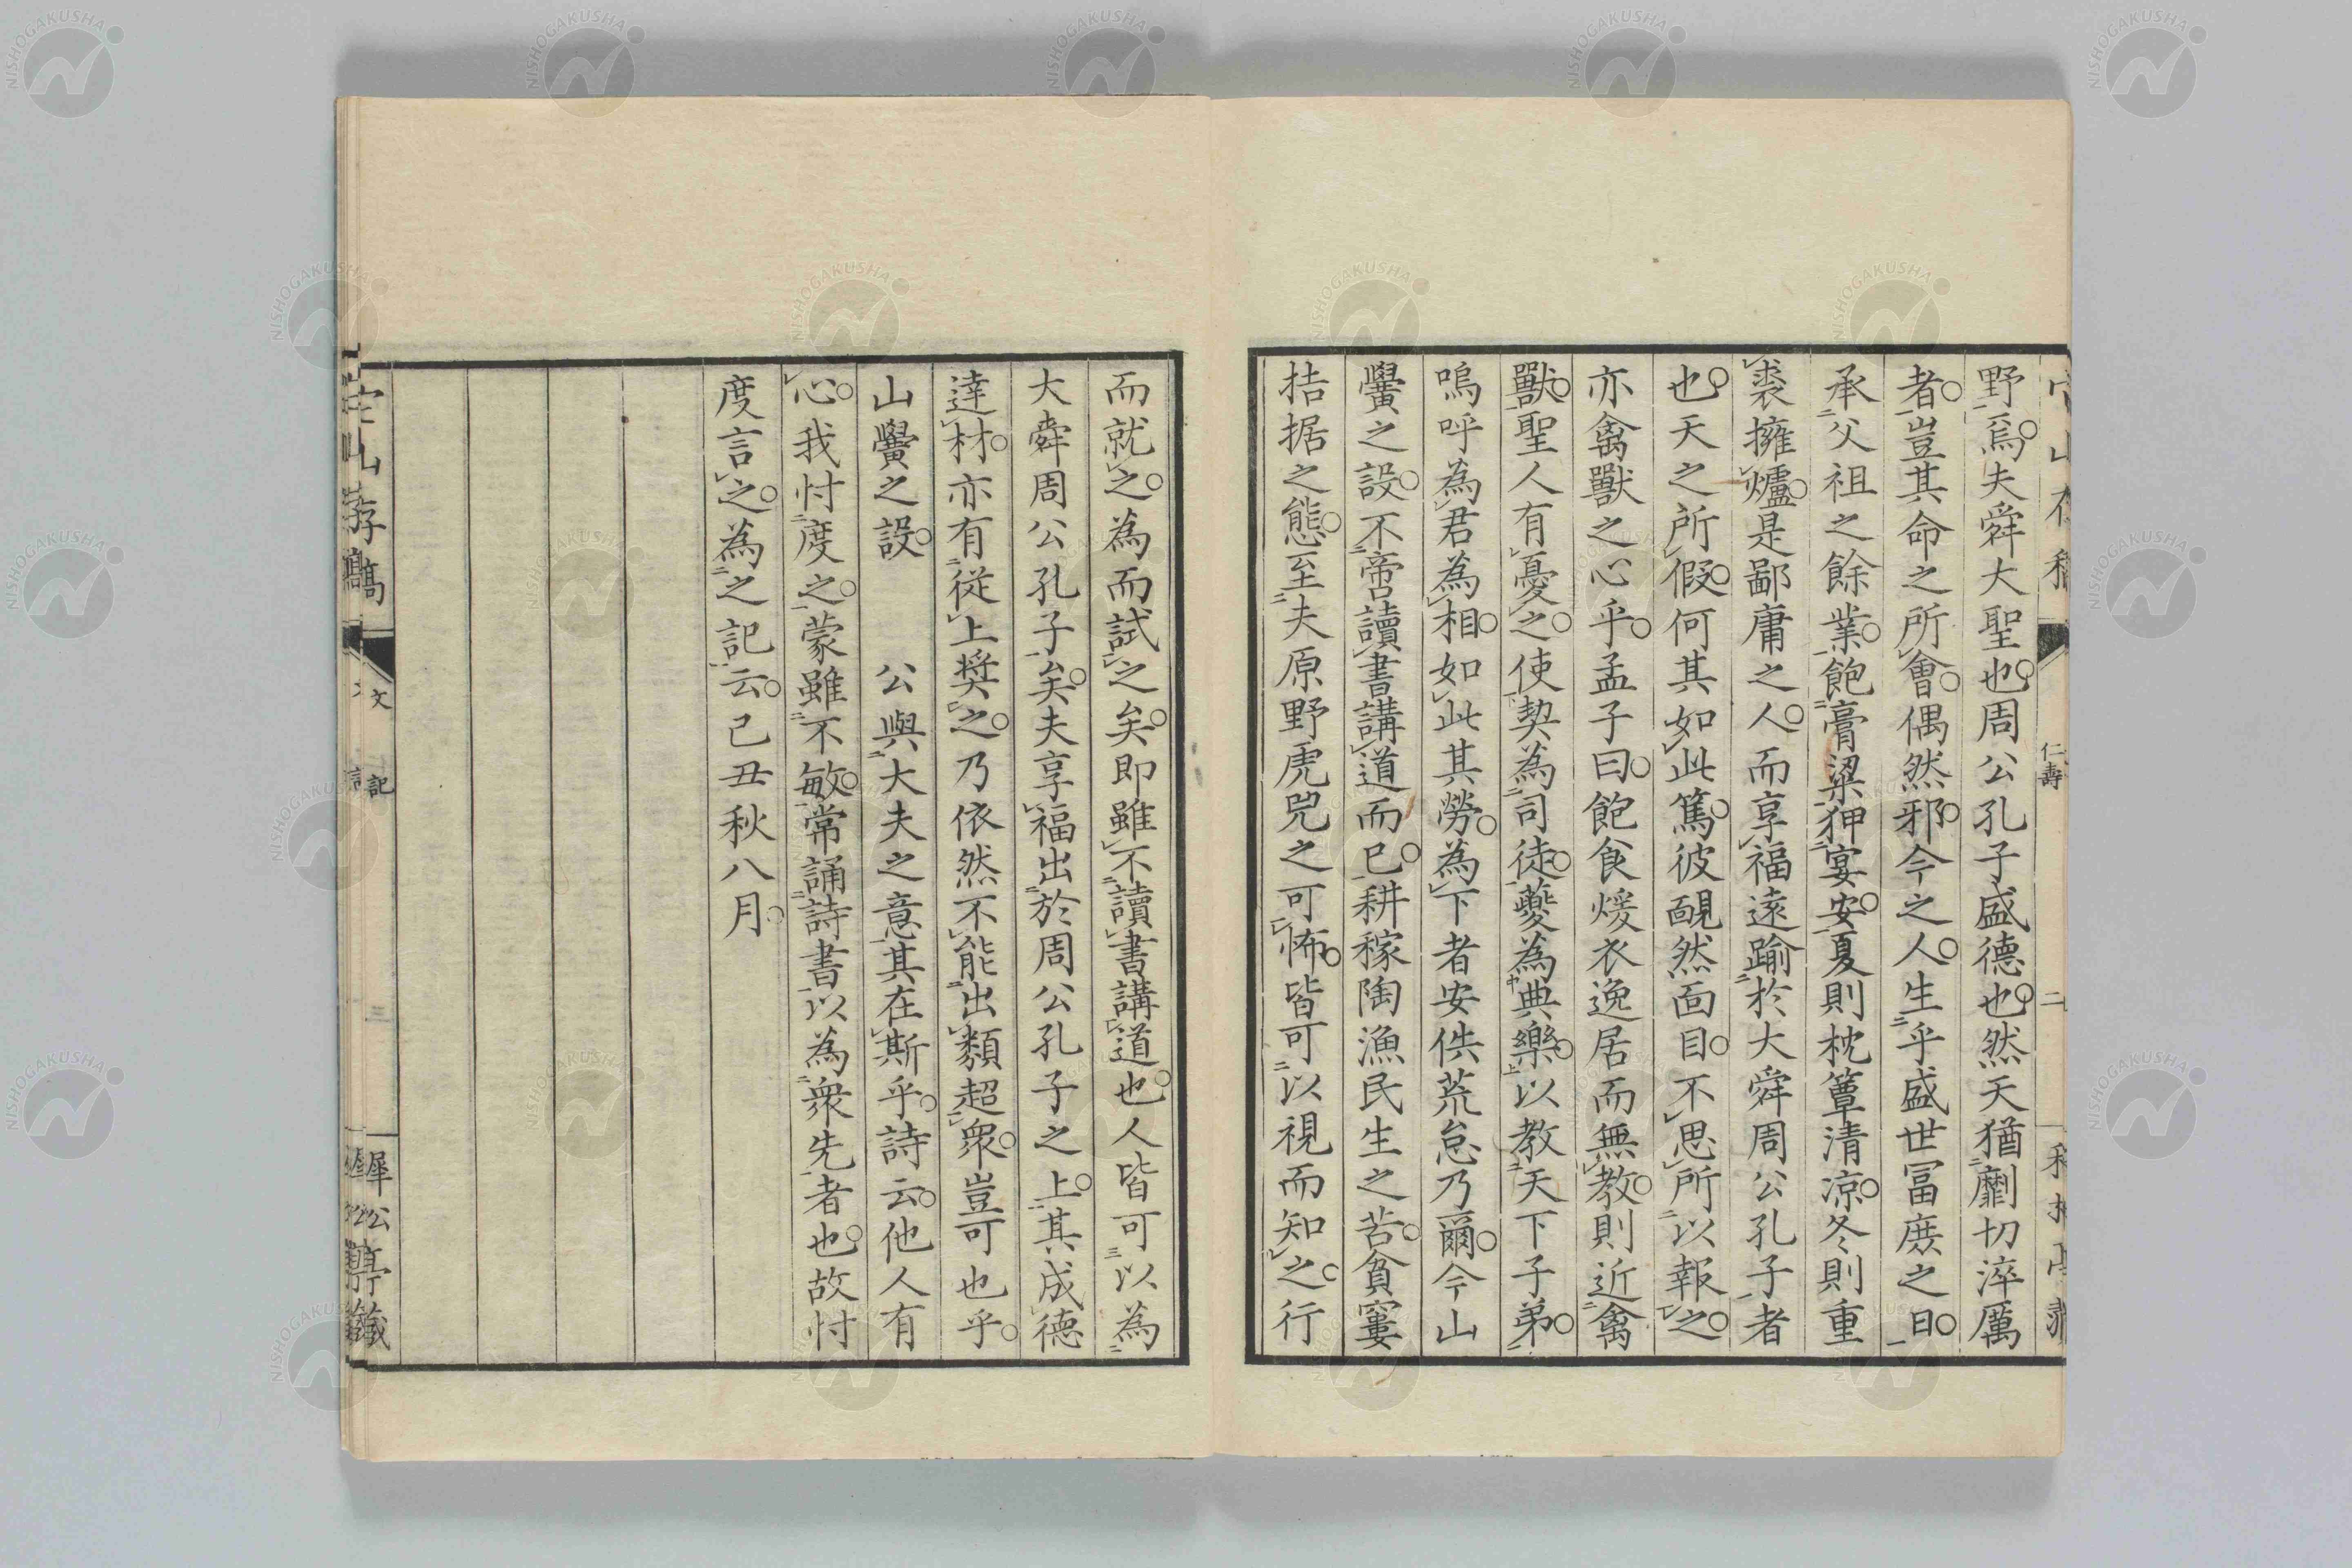 野焉夫舜大聖也周公孔子盛德也然天猶劘切淬厲
者豈其命之所會偶然邪今之人生乎盛世冨庶之日
承父祖之餘業飽膏粱狎宴安夏則枕簟清涼冬則重
裘擁爐是鄙庸之人而享福遠踰於大舜周公孔子者
也天之所假何其如此篤彼靦然面目不思所以報之
亦禽獸之心乎孟子曰飽食煖衣逸居而無教則近禽
獸聖人有憂之使契為司徒夔為典樂以教天下子弟
嗚呼為君為相如此其勞為下者安佚荒怠乃爾今山
黌之設不啻讀書講道而已耕稼陶漁民生之苦貧窶
拮据之態至夫原野虎兕之可怖皆可以視而知之行
而就之為而試之矣即雖不讀書講道也人皆可以為
大舜周公孔子矣夫享福出於周公孔子之上其成德
達材亦有從上奨之乃依然不能出類超衆豈可也乎
山黌之設　公與大夫之意其在斯乎詩云他人有
心我忖度之蒙雖不敏常誦詩書以為衆先者也故忖
度言之為之記云己丑秋八月
仁壽
二
文
記
三
NISHOGAKUSHA